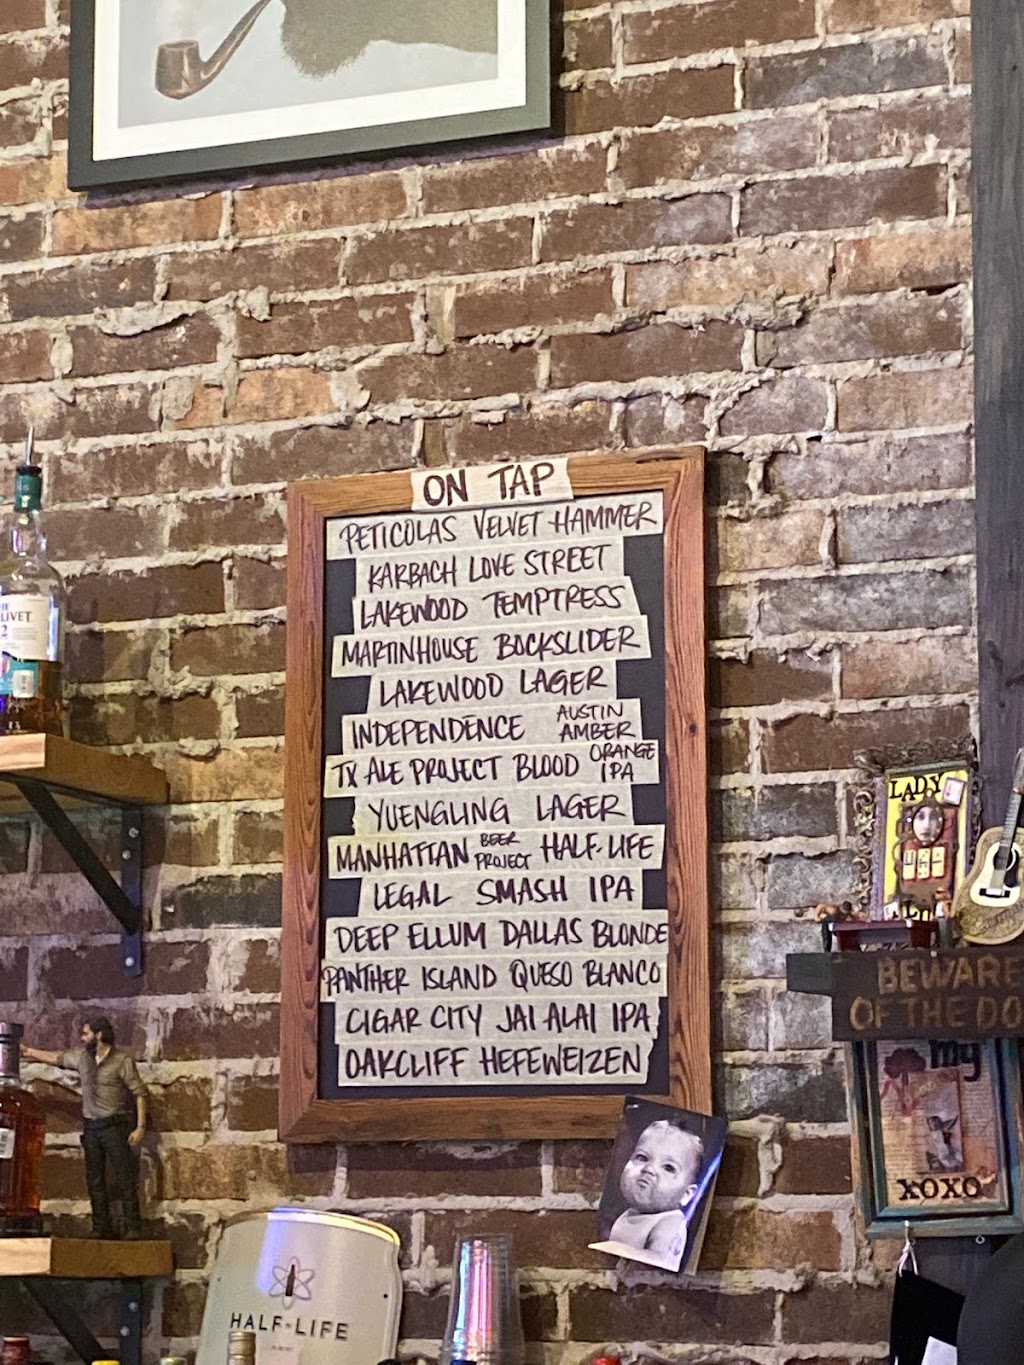 ON TAP
PETICOLAS VELVET HAMMER
KARBACH LOVE STREET
LAKEWOOD TEMPTRESS
MARTINHOUSE BOCKSLIDER
LAKEWOOD LAGER
INDEPENDENCE AUSTIN AMBER
TX ALE PROJECT BLOOD ORANGE IPA
YUENGLING LAGER
MANHATTAN BEER PROJECT HALF-LIFE
LEGAL SMASH IPA
DEEP ELLUM DALLAS BLONDE
PANTHER ISLAND QUESO BLANCO
CIGAR CITY JAI ALAI IPA
OAKCLIFF HEFEWEIZEN
LIVET
2
LADY
BEWARE
OF THE DO
my
XOXO
HALF-LIFE